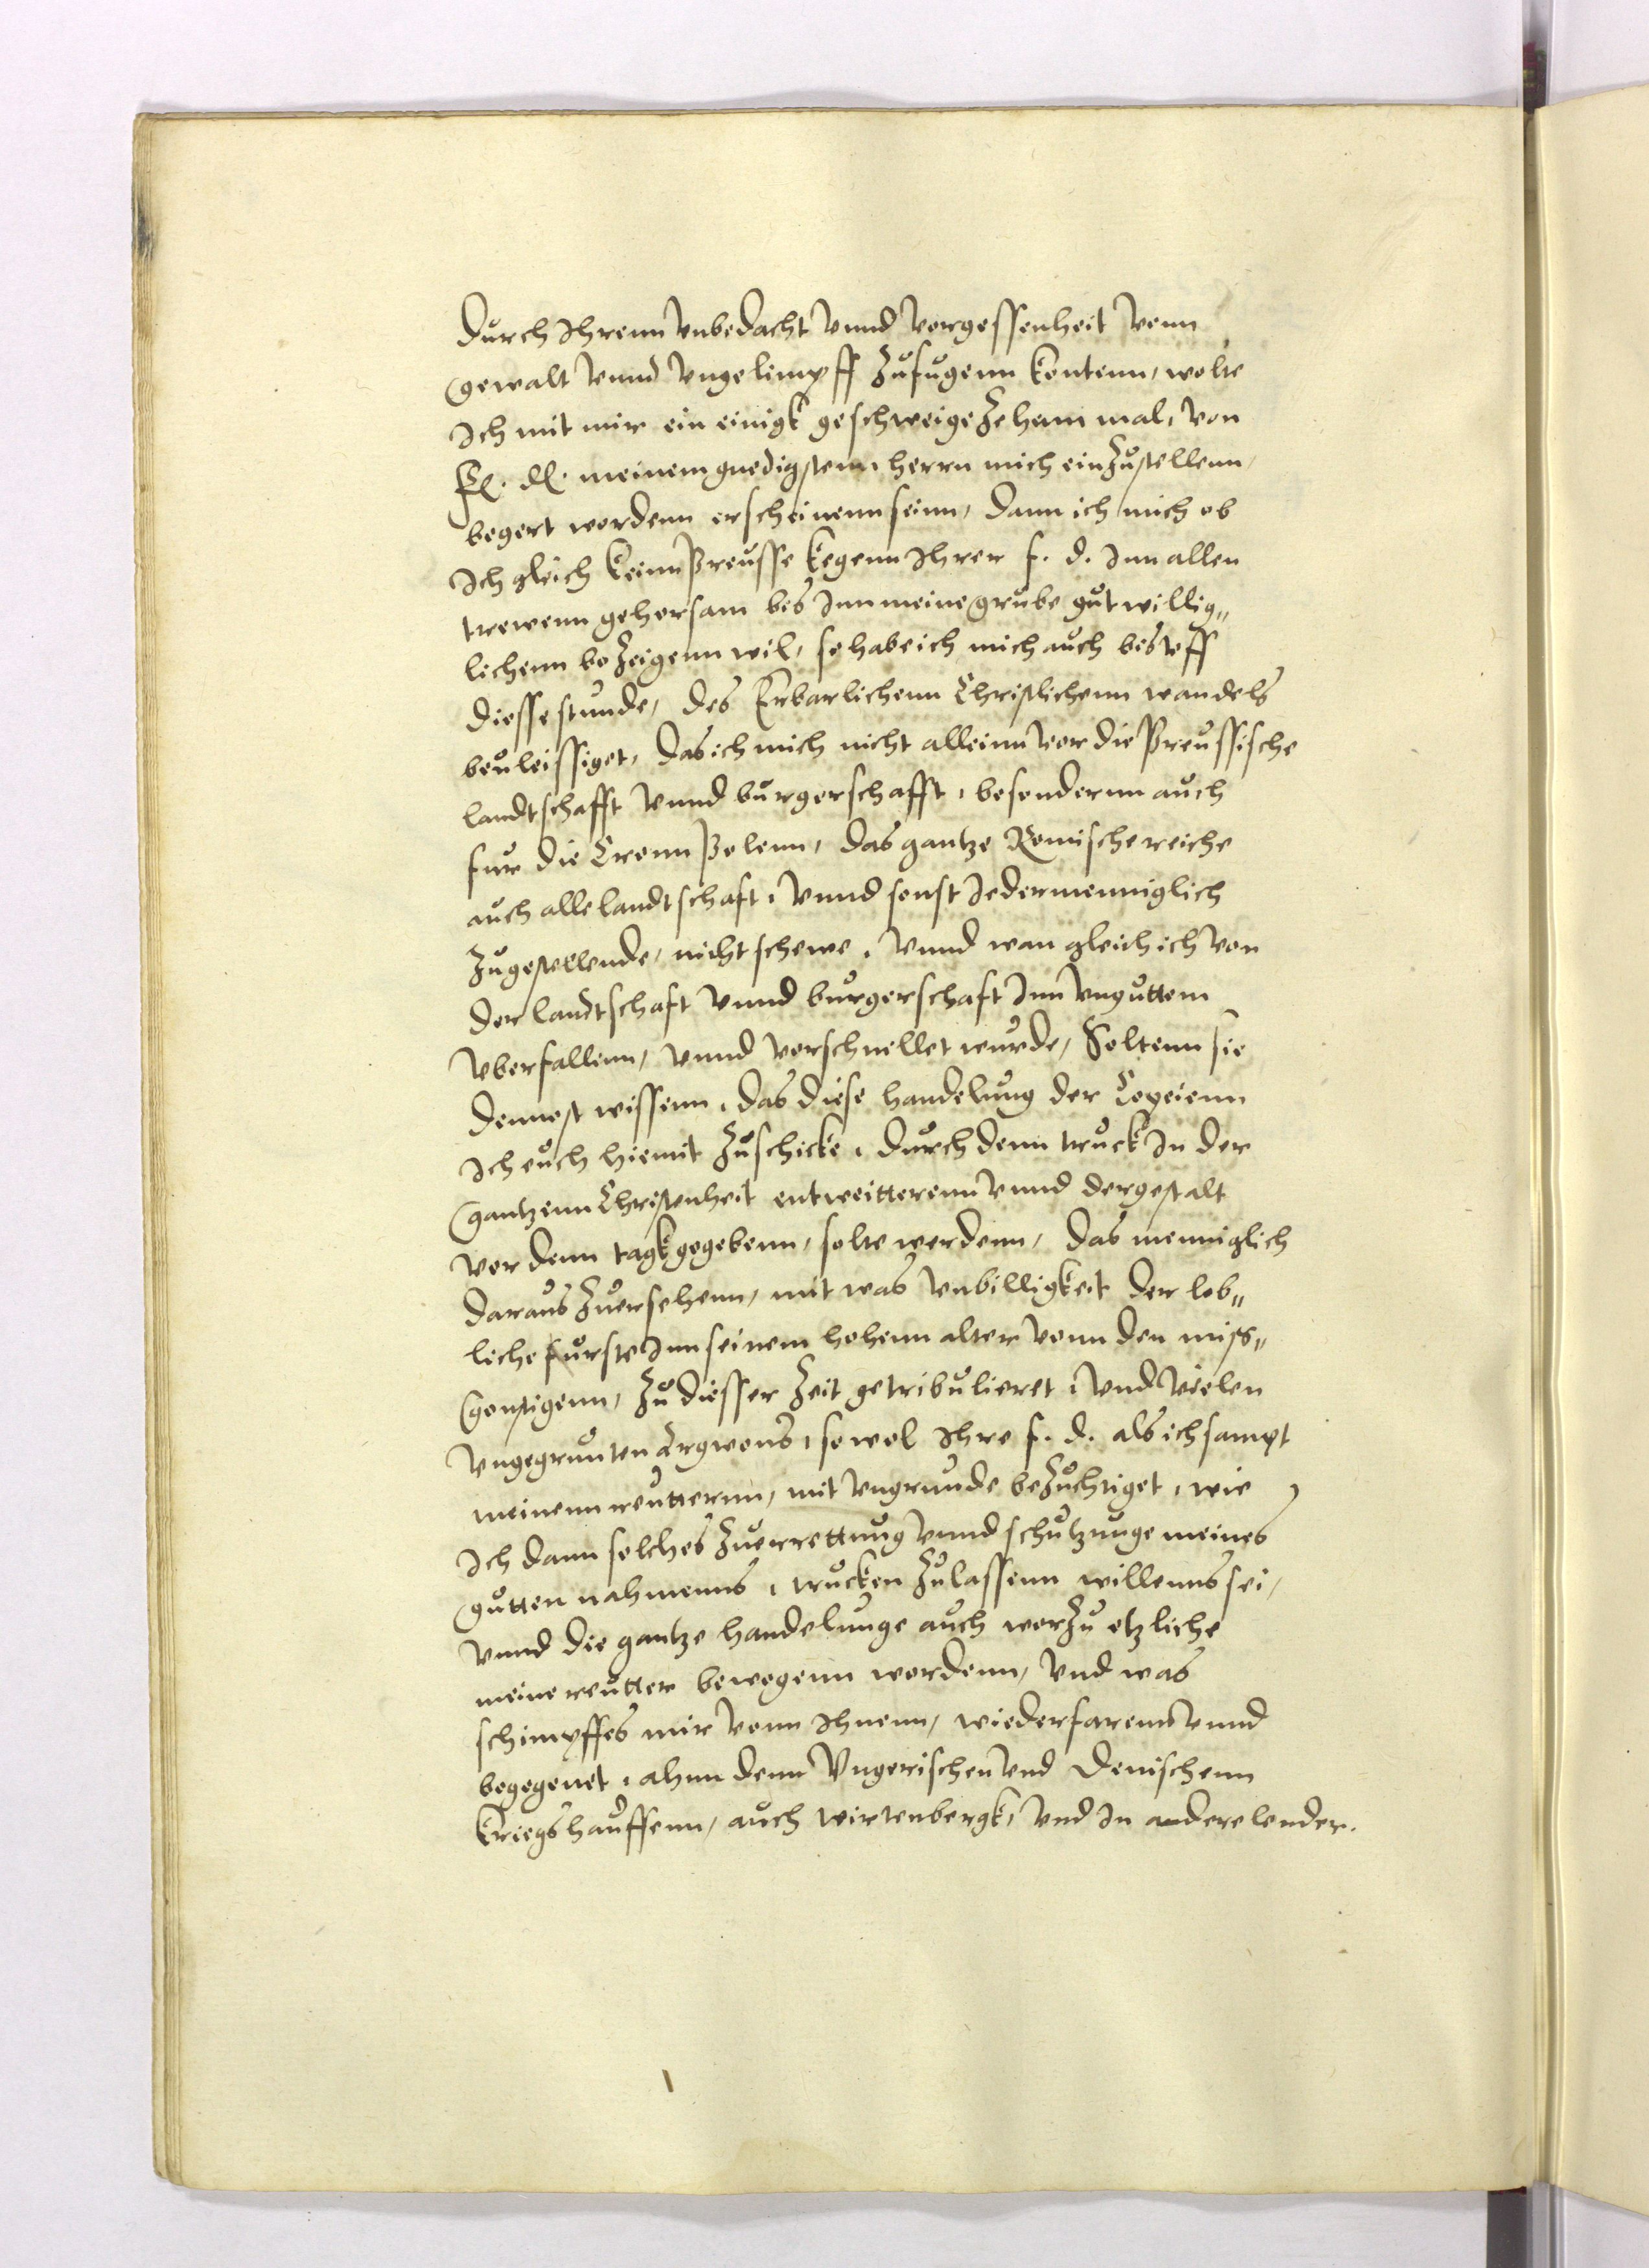 Durch Ihrenn vnbedacht vnnd vorgessenheit vonn
gewalt vnnd vngelimpff zufugenn kontenn, wolte
Ich mit mir ein einigk geschweige zehenn mal, von
F. D. meinem gnedigstenn herrn mich einzustellenn,
begert wordenn erscheinenn seinn, Dann ich mich ob
Ich gleich keinn Preusse kegenn Ihrer f. d. Inn allen
trewenn gehorsam bes Inn meine grube gutwillig„
lichenn bezeigenn wil, so habe ich mich auch bes vff
diesse stunde, des Erbarlichenn Christlichenn wandels
beuleissiget, das ich mich nicht alleinn vor die Preussische
landtschafft vnnd burgerschafft, besondernn auch
fur die Cronn Polenn, das gantze Romische reiche
auch alle landtschaft, vnnd sonst Jedermenniglich
zugestellende, nicht schewe, vnnd wan gleich ich von
der landtschaft vnnd burgerschaft Inn vnguttem
vberfallenn, vnnd vorschnellet wurde, Soltenn sie
dennost wissenn, das diese handelung der Copeienn
Ich euch hiemit zuschicke, durch denn truck In der
gantzenn Christenheit entweitterenn vnnd dergestalt
vor denn tagk gegebenn, solte werdenn, das menniglich
daraus zuersehenn, mit was vnbilligkeit der lob„
liche furste Inn seinem hohenn alter vonn den miss„
gonstigenn, zu diesser zeit getribulieret, vnd vielen
vngegrunten Argwons, so wol Ihre f. d. als ich sampt
meinenn reutternn, mit vngrunde bezuchtiget, wie
Ich dann solches zuerrettung vnnd schutzunge meines
gutten nahmenns, trucken zulassenn willenns sei,
vnnd die gantze handelunge auch worzu etzliche
meine reutter bewogenn wordenn, vnd was
schimpffes mir vonn Ihnenn, wiederfarenn vnnd
begegenet, ahnn denn Vngerischen vnd Denischenn
kriegshauffenn, auch wirtenbergk, vnd In andere lender.